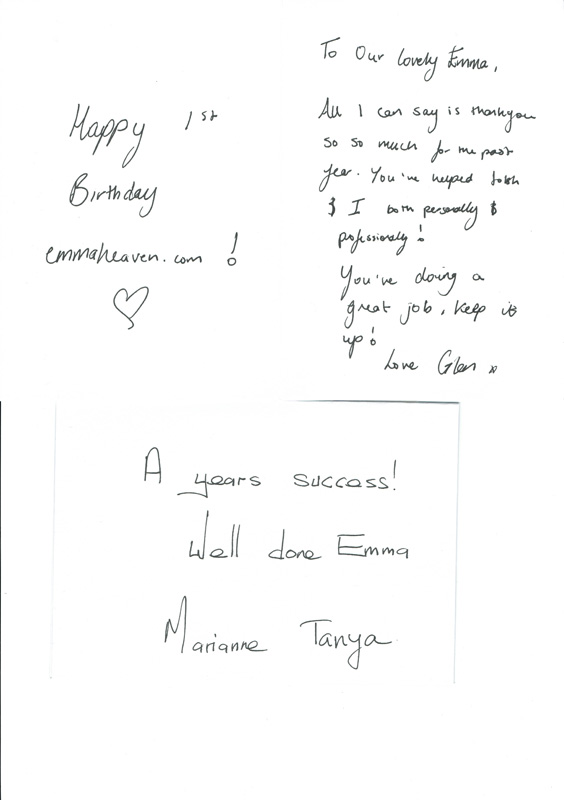 Happy 1st
Birthday
emmaheaven.com !
To Our lovely Emma,
All I can say is thankyou
so so much for the past
year. You've helped
& I both personally &
professionally!
You've doing a
great job, keep it
up!
Love Glen x
A years success!
Well done Emma
Marianne Tanya